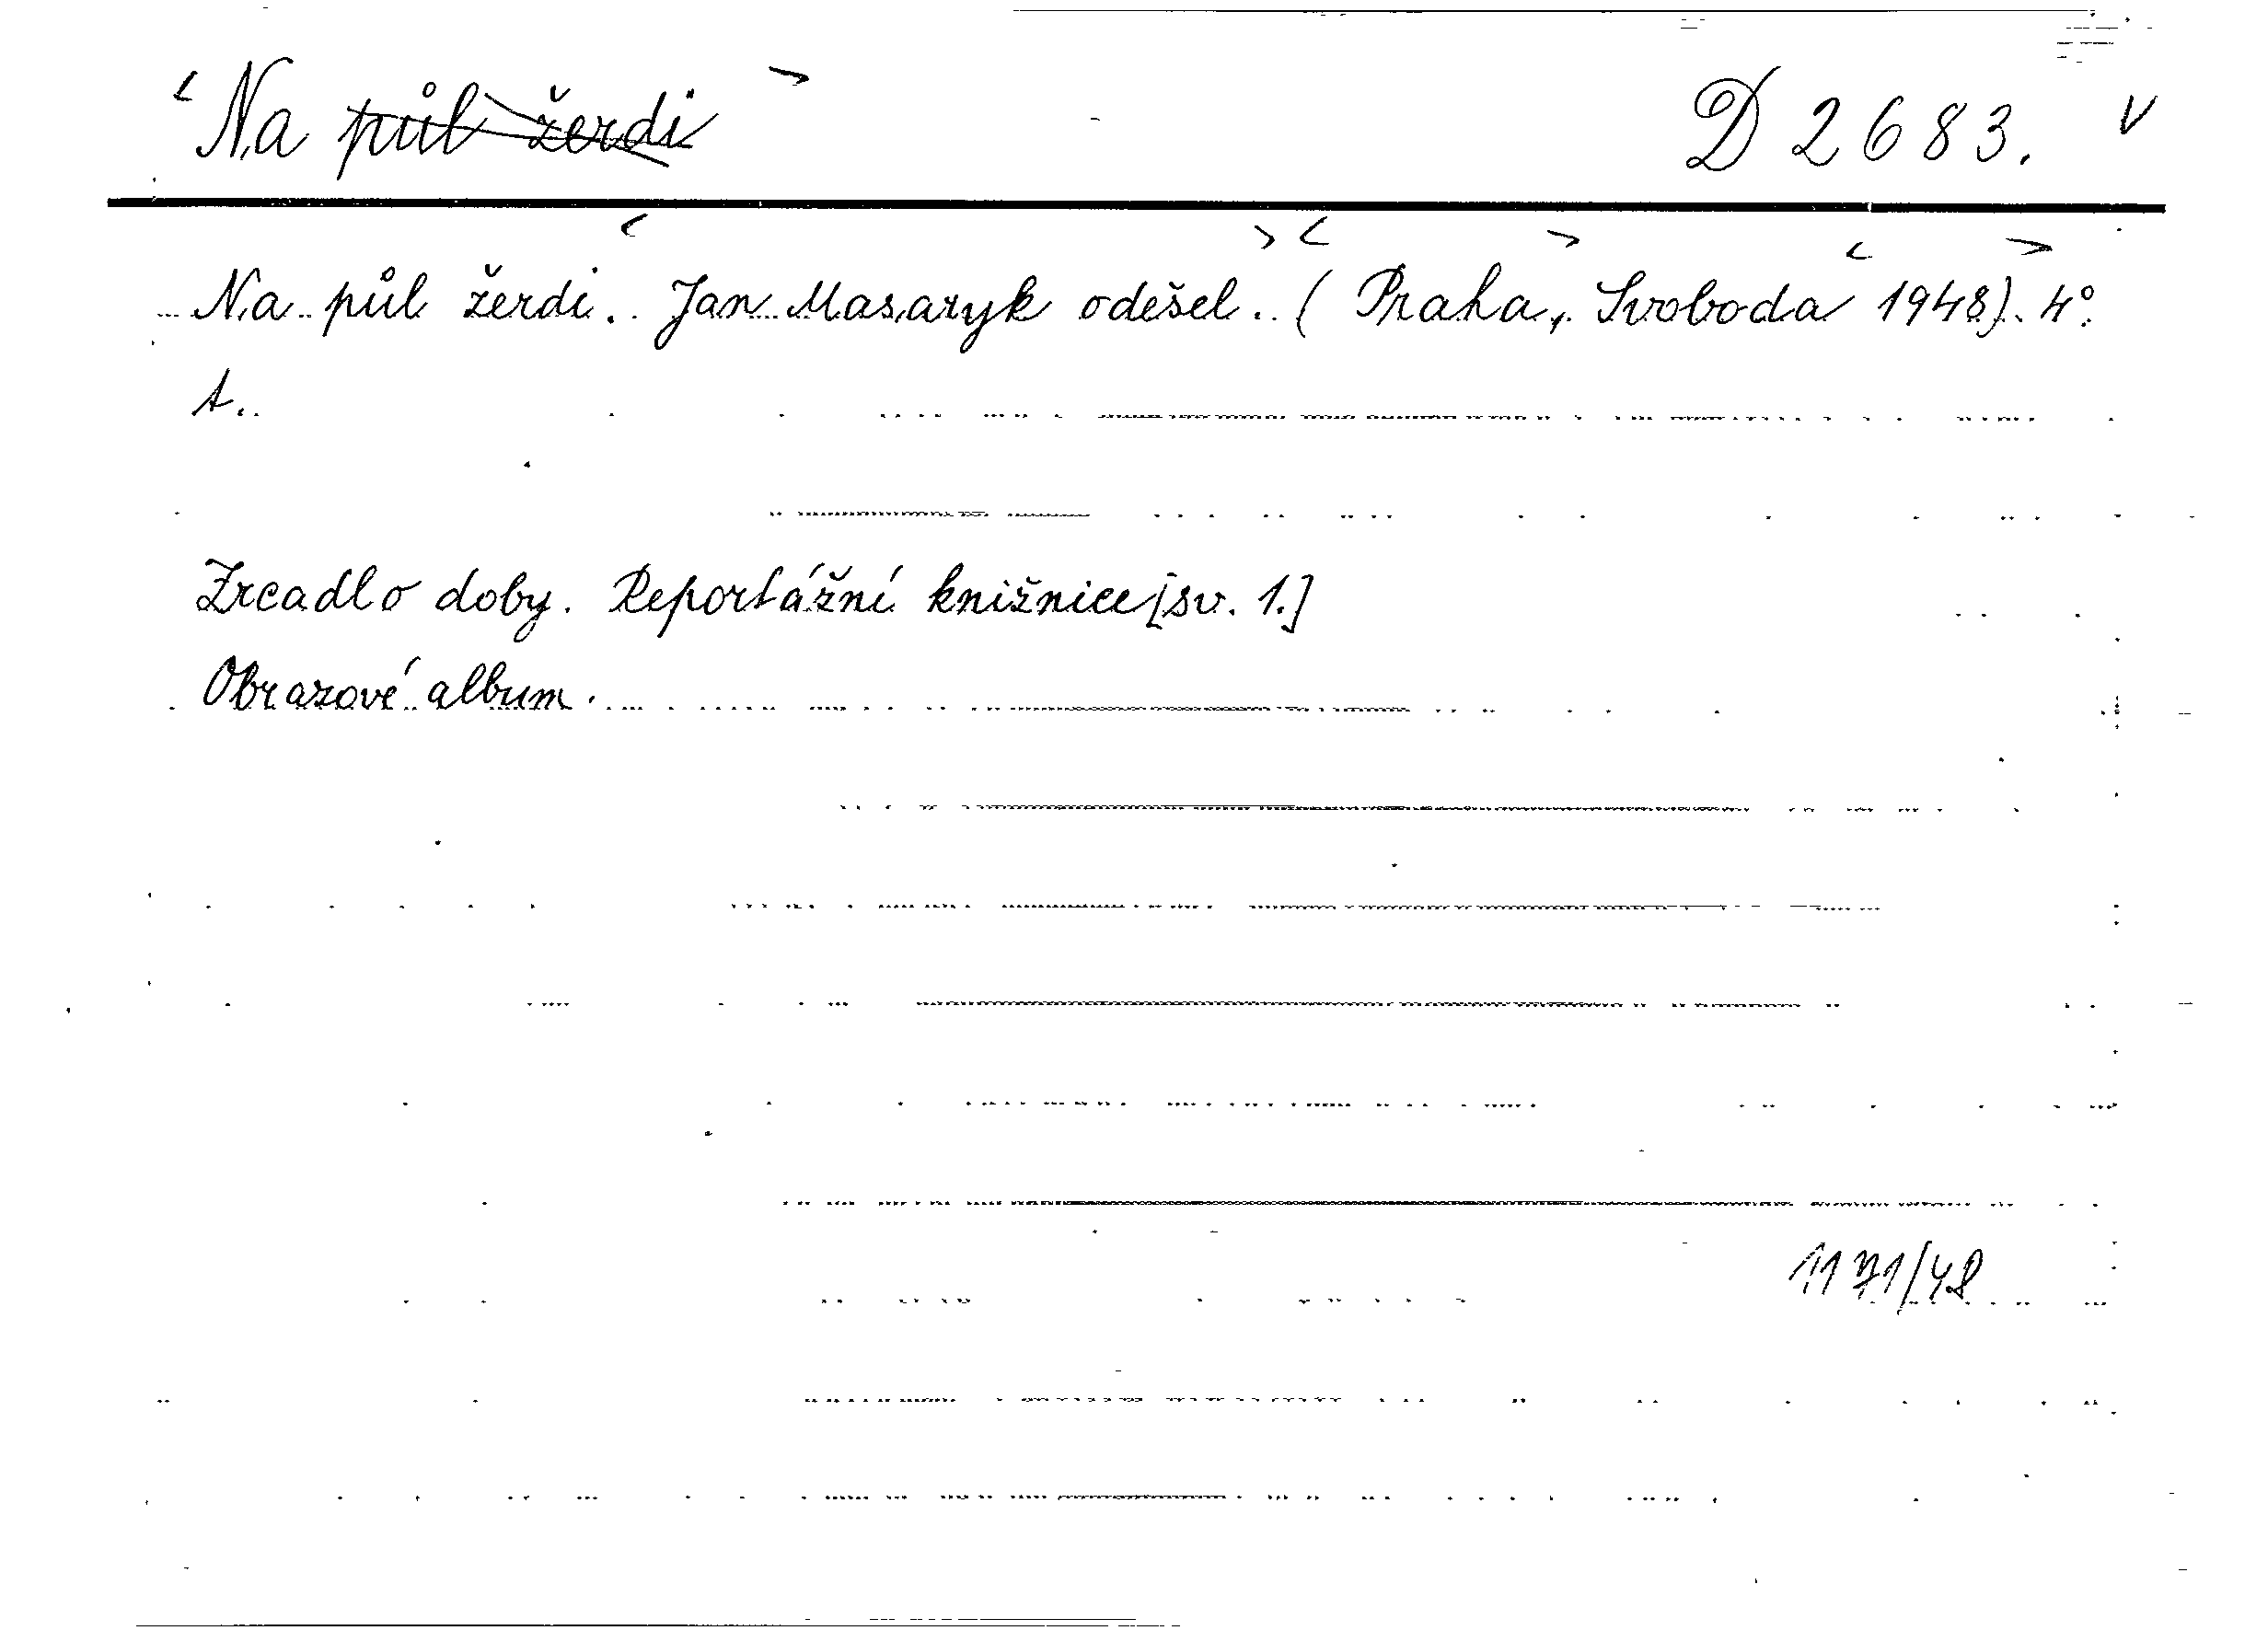 Na půl žerdi D 2683. v
Na půl žerdi. Jan Masaryk odešel. (Praha, Svoboda 1948). 4°.
t.
Zrcadlo doby. Reportážní knižnice [sv. 1.]
Obrazové album.
1171/48